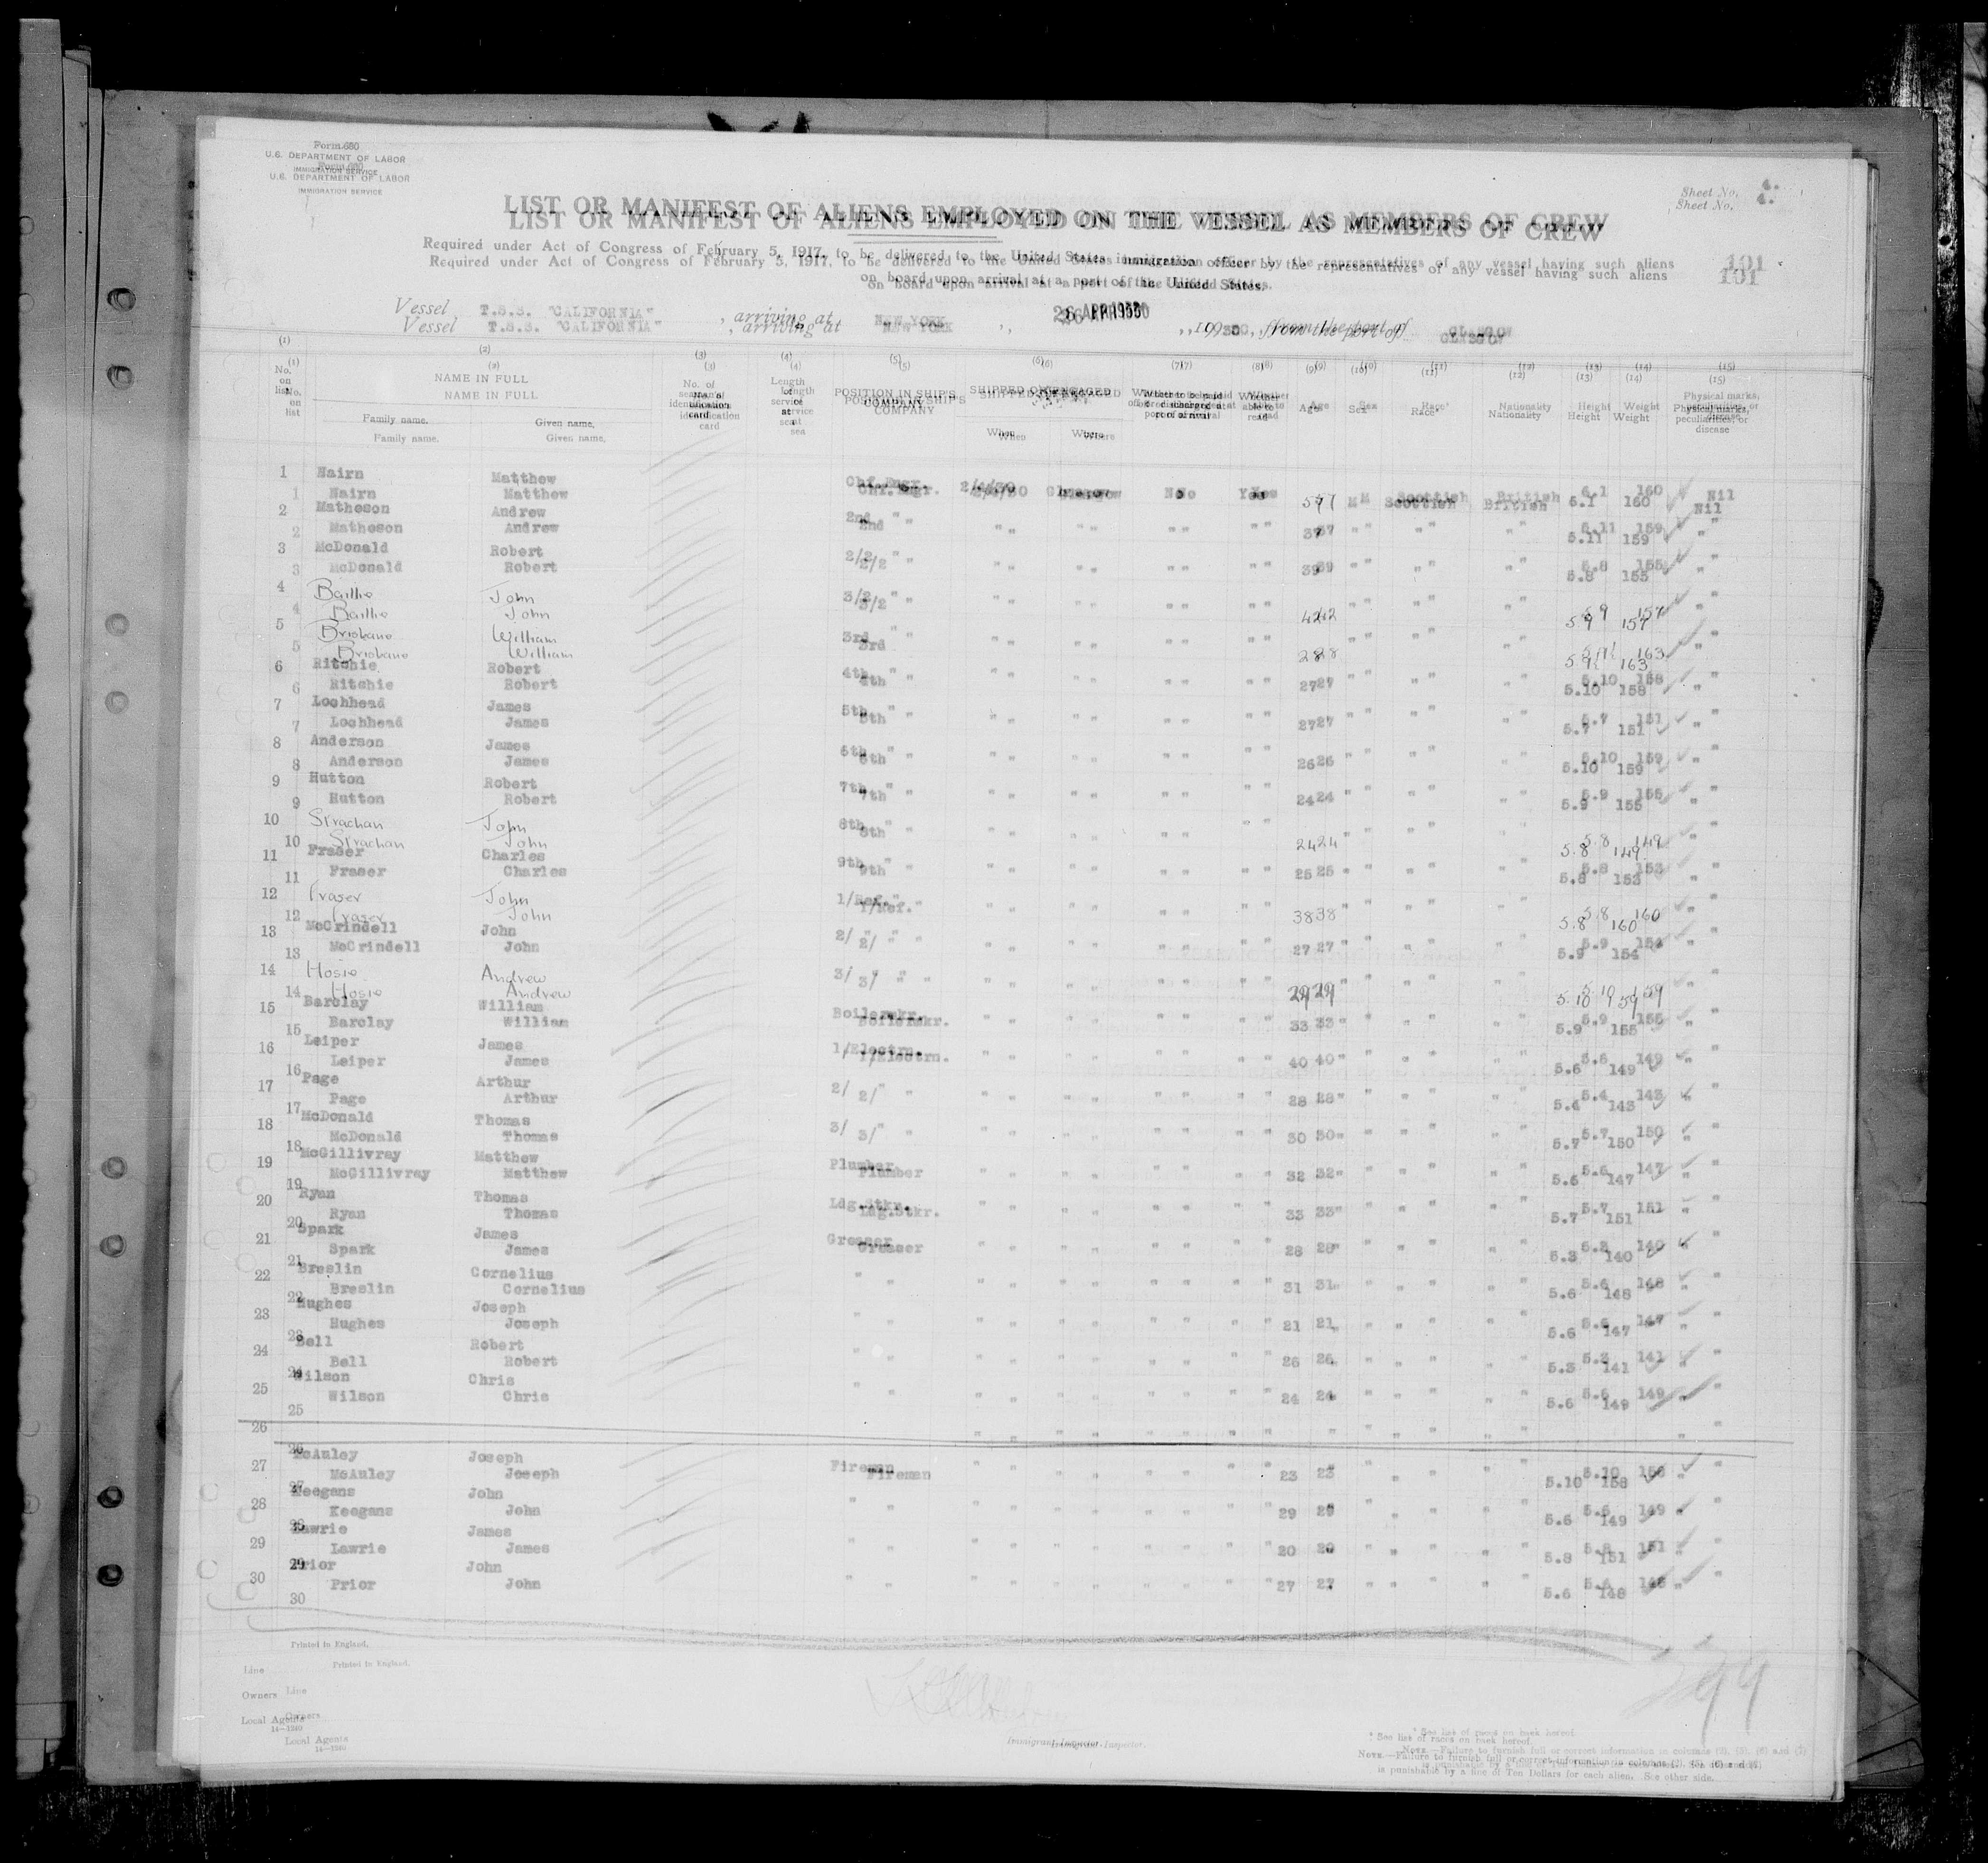 Form 680
U.S. DEPARTMENT OF LABOR
IMMIGRATION SERVICE
Sheet No. 4.
LIST OR MANIFEST OF ALIENS EMPLOYED ON THE VESSEL AS MEMBERS OF CREW
Required under Act of Congress of February 5, 1917, to be delivered to the United States immigration officer by the representatives of any vessel having such aliens
on board upon arrival at a port of the United States.
101
Vessel T.S.S. "CALIFORNIA", arriving at NEW YORK, 26 APR 1930, 1930, from the port of GLASGOW
(1) (2) (3) (4) (5) (6) (7) (8) (9) (10) (11) (12) (13) (14) (15)
No. on list NAME IN FULL Family name. Given name. No. of seaman's identification card Length of service at sea POSITION IN SHIP'S COMPANY SHIPPED OR ENGAGED When Where Whether to be paid off or discharged at port of arrival Whether able to read Age Sex Race* Nationality Height Weight Physical marks, peculiarities, or disease
1 Nairn Matthew Chf.Engr. 2/4/30 Glasgow No Yes 57 M Scottish British 5.1 160 Nil
2 Matheson Andrew 2nd " " " " " 37 " " " 5.11 159 "
3 McDonald Robert 2/2 " " " " " 39 " " " 5.8 155 "
4 Baillie John 3/2 " " " " " 42 " " " 5 9 157 "
5 Brisbane William 3rd " " " " " 28 " " " 5 9½ 163 "
6 Ritchie Robert 4th " " " " " 27 " " " 5.10 158 "
7 Lochhead James 5th " " " " " 27 " " " 5.7 151 "
8 Anderson James 6th " " " " " 26 " " " 5.10 159 "
9 Hutton Robert 7th " " " " " 24 " " " 5.9 155 "
10 Strachan John 8th " " " " " 24 " " " 5.8 149 "
11 Fraser Charles 9th " " " " " 25 " " " 5.8 153 "
12 Fraser John 1/Ref. " " " " " 38 " " " 5.8 160 "
13 McCrindell John 2/ " " " " " " 27 " " " 5.9 154 "
14 Hosie Andrew 3/ " " " " " " 29 " " " 5.10 159 "
15 Barclay William Boilermkr. " " " " 33 " " " 5.9 155 "
16 Leiper James 1/Electrn. " " " " 40 " " " 5.6 149 "
17 Page Arthur 2/ " " " " " 28 " " " 5.4 143 "
18 McDonald Thomas 3/ " " " " " 30 " " " 5.7 150 "
19 McGillivray Matthew Plumber " " " " 32 " " " 5.6 147 "
20 Ryan Thomas Ldg.Stkr. " " " " 33 " " " 5.7 151 "
21 Spark James Greaser " " " " 28 " " " 5.3 140 "
22 Breslin Cornelius " " " " " 31 " " " 5.6 148 "
23 Hughes Joseph " " " " " 21 " " " 5.6 147 "
24 Bell Robert " " " " " 26 " " " 5.3 141 "
25 Wilson Chris " " " " " 24 " " " 5.6 149 "
26 " " " " " " " "
27 McAuley Joseph Fireman " " " " 23 " " " 5.10 158 "
28 Keegans John " " " " " 29 " " " 5.6 149 "
29 Lawrie James " " " " " 20 " " " 5.8 151 "
30 Prior John " " " " " 27 " " " 5.6 148 "
Printed in England.
Line
Owners
Local Agents
14—1240
Immigrant Inspector.
99
* See list of races on back hereof.
NOTE.—Failure to furnish full or correct information in columns (2), (5), (6) and (7)
is punishable by a fine of Ten Dollars for each alien. See other side.